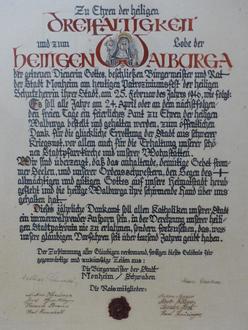 Zu Ehren der heiligen
DREIFALTIGKEIT
und zum Lobe der
HEILIGEN WALBURGA
der getreuen Dienerin Gottes, beschließen Bürgermeister und Rat
der Stadt Monheim am heutigen Patroziniumsfest der heiligen
Schutzherrin ihrer Stadt, am 25. Februar des Jahres 1946, wie folgt:
Es soll alle Jahre am 24. April oder an dem nachstfolgen-
den freien Tage ein feierliches Amt zu Ehren der heiligen
Walburga bestellt und gehalten werden, zum öffentlichen
Dank für die glückliche Errettung der Stadt aus schwerer
Kriegsnot, vor allem auch für die Erhaltung unserer schö-
nen Stadtpfarrkirche und unserer Wohnstätten.
Wir sind überzeugt, daß das anhaltende, demütige Gebet from-
mer Seelen, und unserer Ordensschwestern, den Segen des
allmächtigen und gütigen Gottes auf unsere Heimatstadt herab
gefleht und die heilige Walburga ihre schirmende Hand über uns
gehalten hat.
Dieses jährliche Dankamt soll allen Katholiken unserer Stadt
ein immerwährender Ansporn sein, in der Verehrung unserer heili-
gen Stadtpatronin nie zu erlahmen, sondern fortzusetzen, das, was
unsere gläubigen Vorfahren seit über tausend Jahren geübt haben.
Der Zustimmung aller Gläubigen vertrauend, fertigen dieses Gelöbnis für
gegenwärtige und zukünftige Zeiten aus:
Die Bürgermeister der Stadt
Monheim / Schwaben
Die Ratsmitglieder: